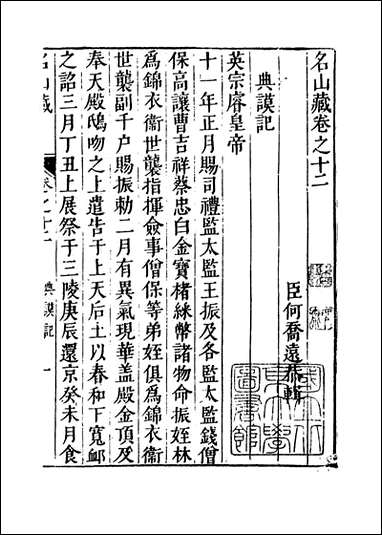 名山藏卷之十二
臣何喬遠恭輯
典謨記
英宗睿皇帝
十一年正月賜司禮監太監王振及各監太監錢僧
保高讓曹吉祥蔡忠白金寶楮綵幣諸物命振姪林
爲錦衣衞世襲指揮僉事僧保等弟姪俱爲錦衣衞
世襲副千戶賜振勅二月有異氣現華蓋殿金頂及
奉天殿鴟吻之上遣告于上天后土以春和下寬卹
之詔三月丁丑上展祭于三陵庚辰還京癸未月食
名山藏
卷之十二
典謨記
一